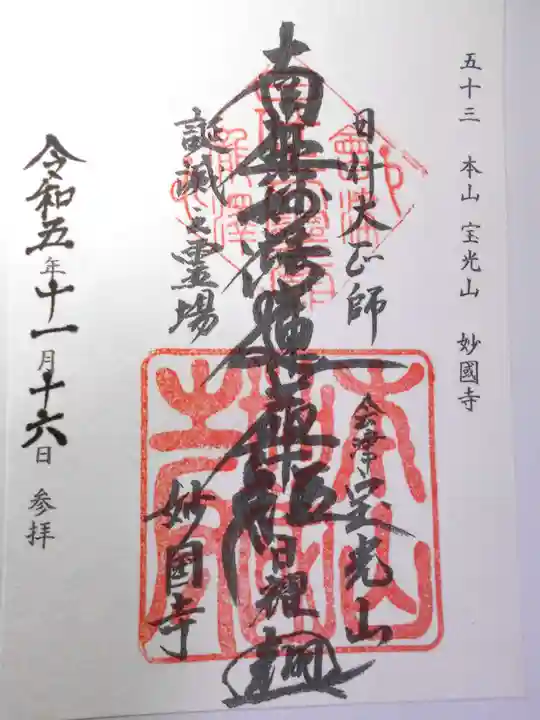 五十三 本山 宝光山 妙國寺
日什大正師
会津 宝光山
南無妙法蓮華経
誕滅之霊場
妙国寺
令和五年十一月十六日 参拝